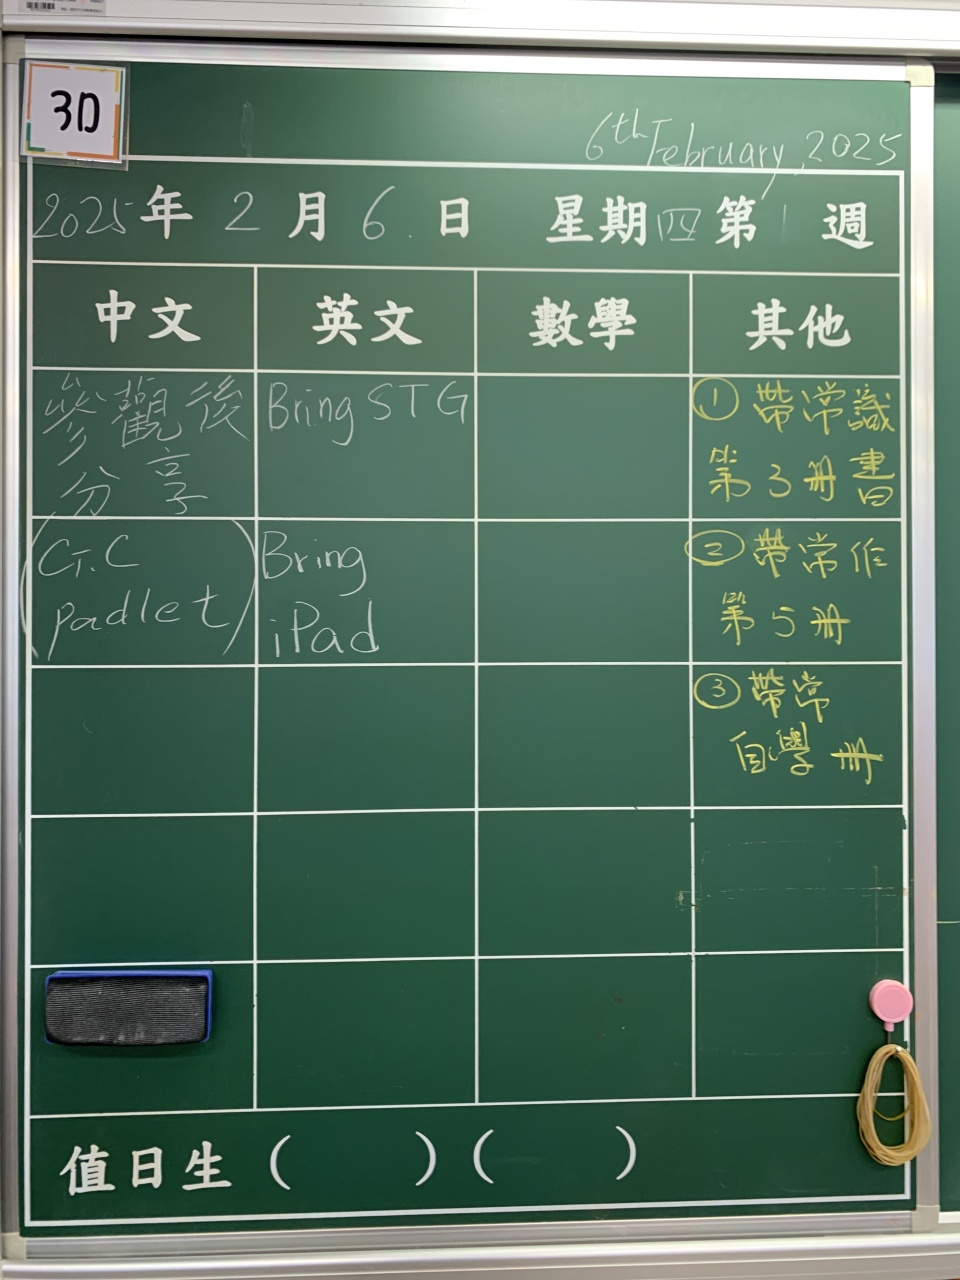 3D
6th February, 2025
2025年 2 月 6 日 星期四 第 1 週
中文 英文 數學 其他
參觀後
分享
Bring STG
① 帶常識
第3冊書
(G.C
Padlet)
Bring
iPad
② 帶常作
第5冊
③ 帶常
自學冊
值日生 ( ) ( )